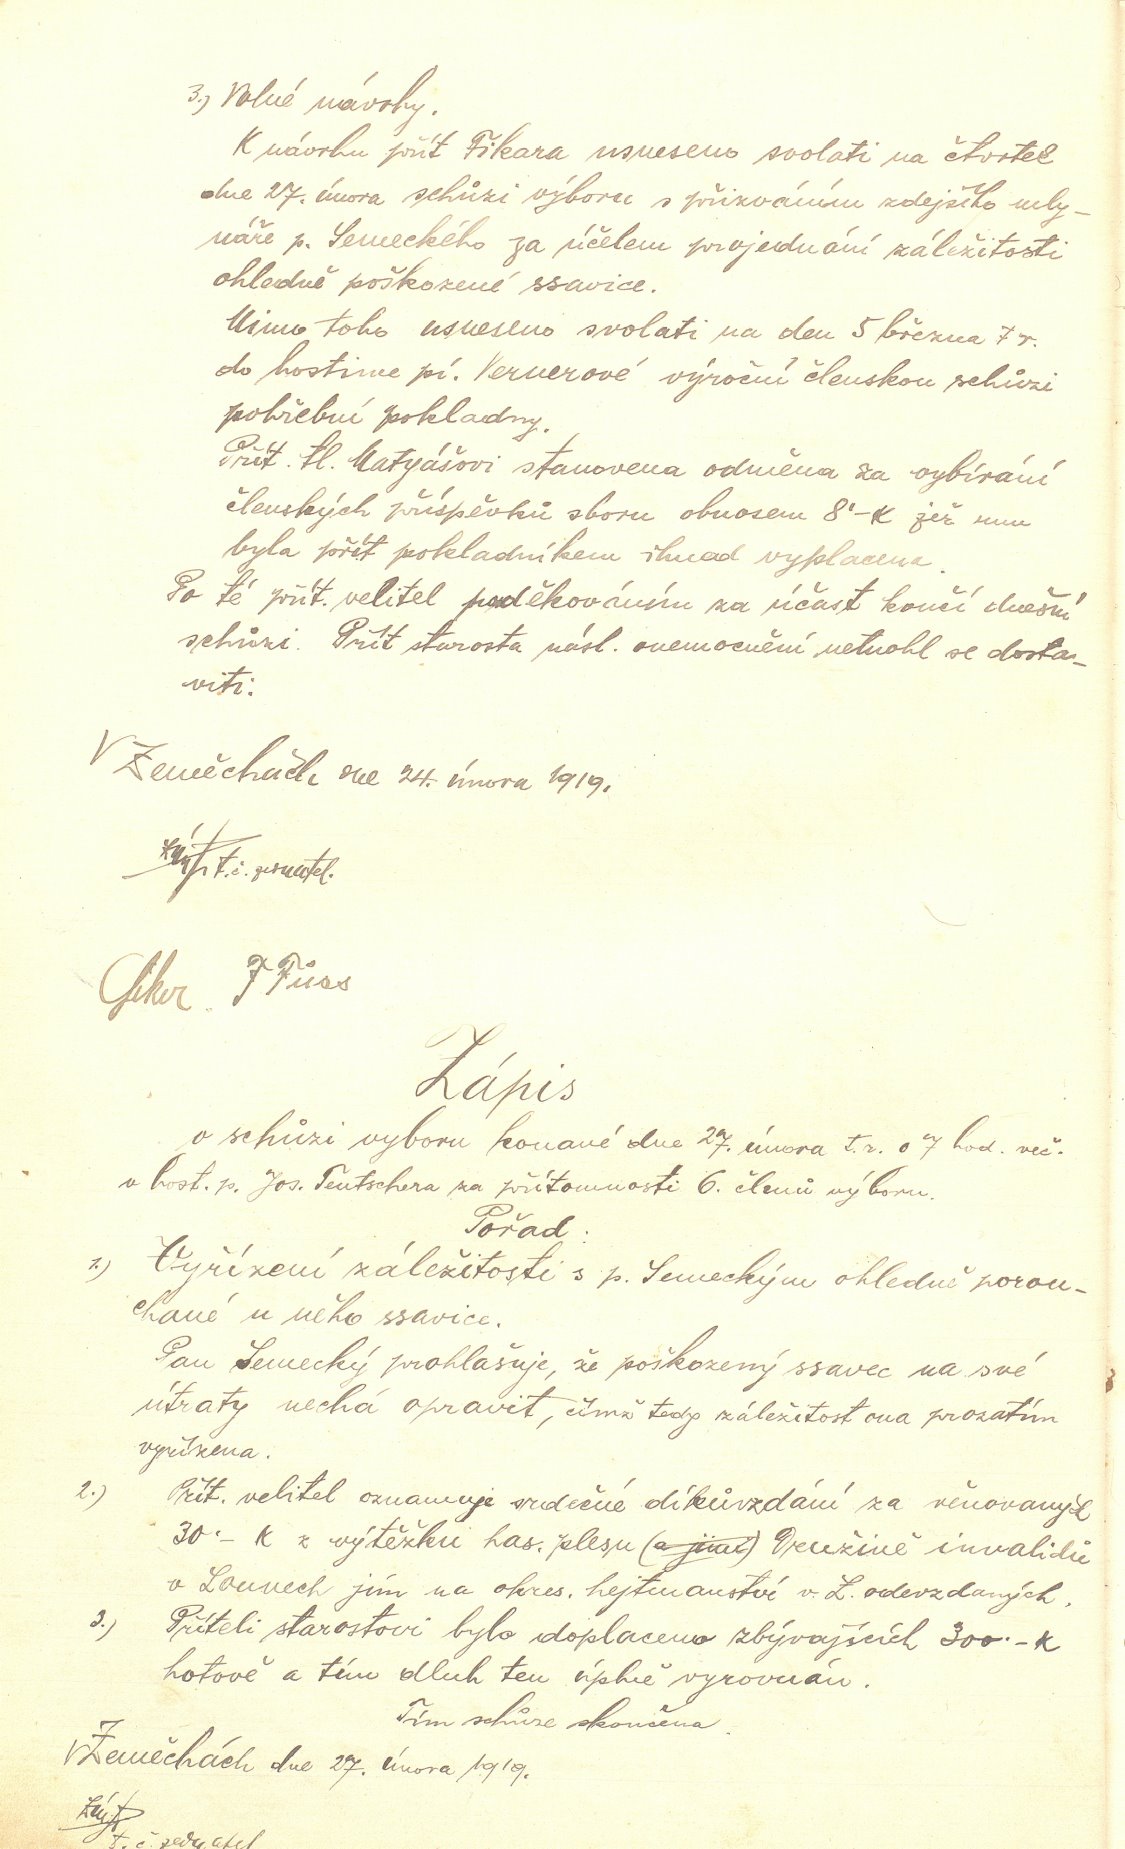 3.) Volné návrhy.
K návrhu přít Fikara usneseno svolati na čtvrtek
dne 27. února schůzi výboru s přizváním zdejšího mly-
náře p. Semeckého za účelem projednání záležitosti
ohledně poškozené ssavice.
Mimo toho usneseno svolati na den 5 března t r.
do hostince pí. Vernerové výroční členskou schůzi
pohřební pokladny.
Přít. tl. Matyášovi stanovena odměna za vybírání
členských příspěvků sboru obnosem 8'-K jež mu
byla přít pokladníkem ihned vyplacena.
Po té přít. velitel poděkováním za účast končí dnešní
schůzi. Přít starosta násl. onemocnění nemohl se dosta-
viti.
V Zeměchách dne 24. února 1919.
t.č. jednatel.
F Füss
Zápis
o schůzi výboru konané dne 27. února t.r. o 7 hod. več.
v host. p. Jos. Teutschera za přítomnosti 6. členů výboru.
Pořad:
1.) Vyřízení záležitosti s p. Semeckým ohledně porou-
chané u něho ssavice.
Pan Semecký prohlašuje, že poškozený ssavec na své
útraty nechá opravit, čímž tedy záležitost ona prozatím
vyřízena.
2.) Přít. velitel oznamuje srdečné díkůvzdání za věnovaných
30·- K z výtěžku has. plesu (a jiné) Družině invalidů
v Lounech jím na okres. hejtmanství v. L. odevzdaných.
3.) Příteli starostovi bylo doplaceno zbývajících 300·-K
hotově a tím dluh ten úplně vyrovnán.
Tím schůze skončena.
V Zeměchách dne 27. února 1919.
t. č. jednatel